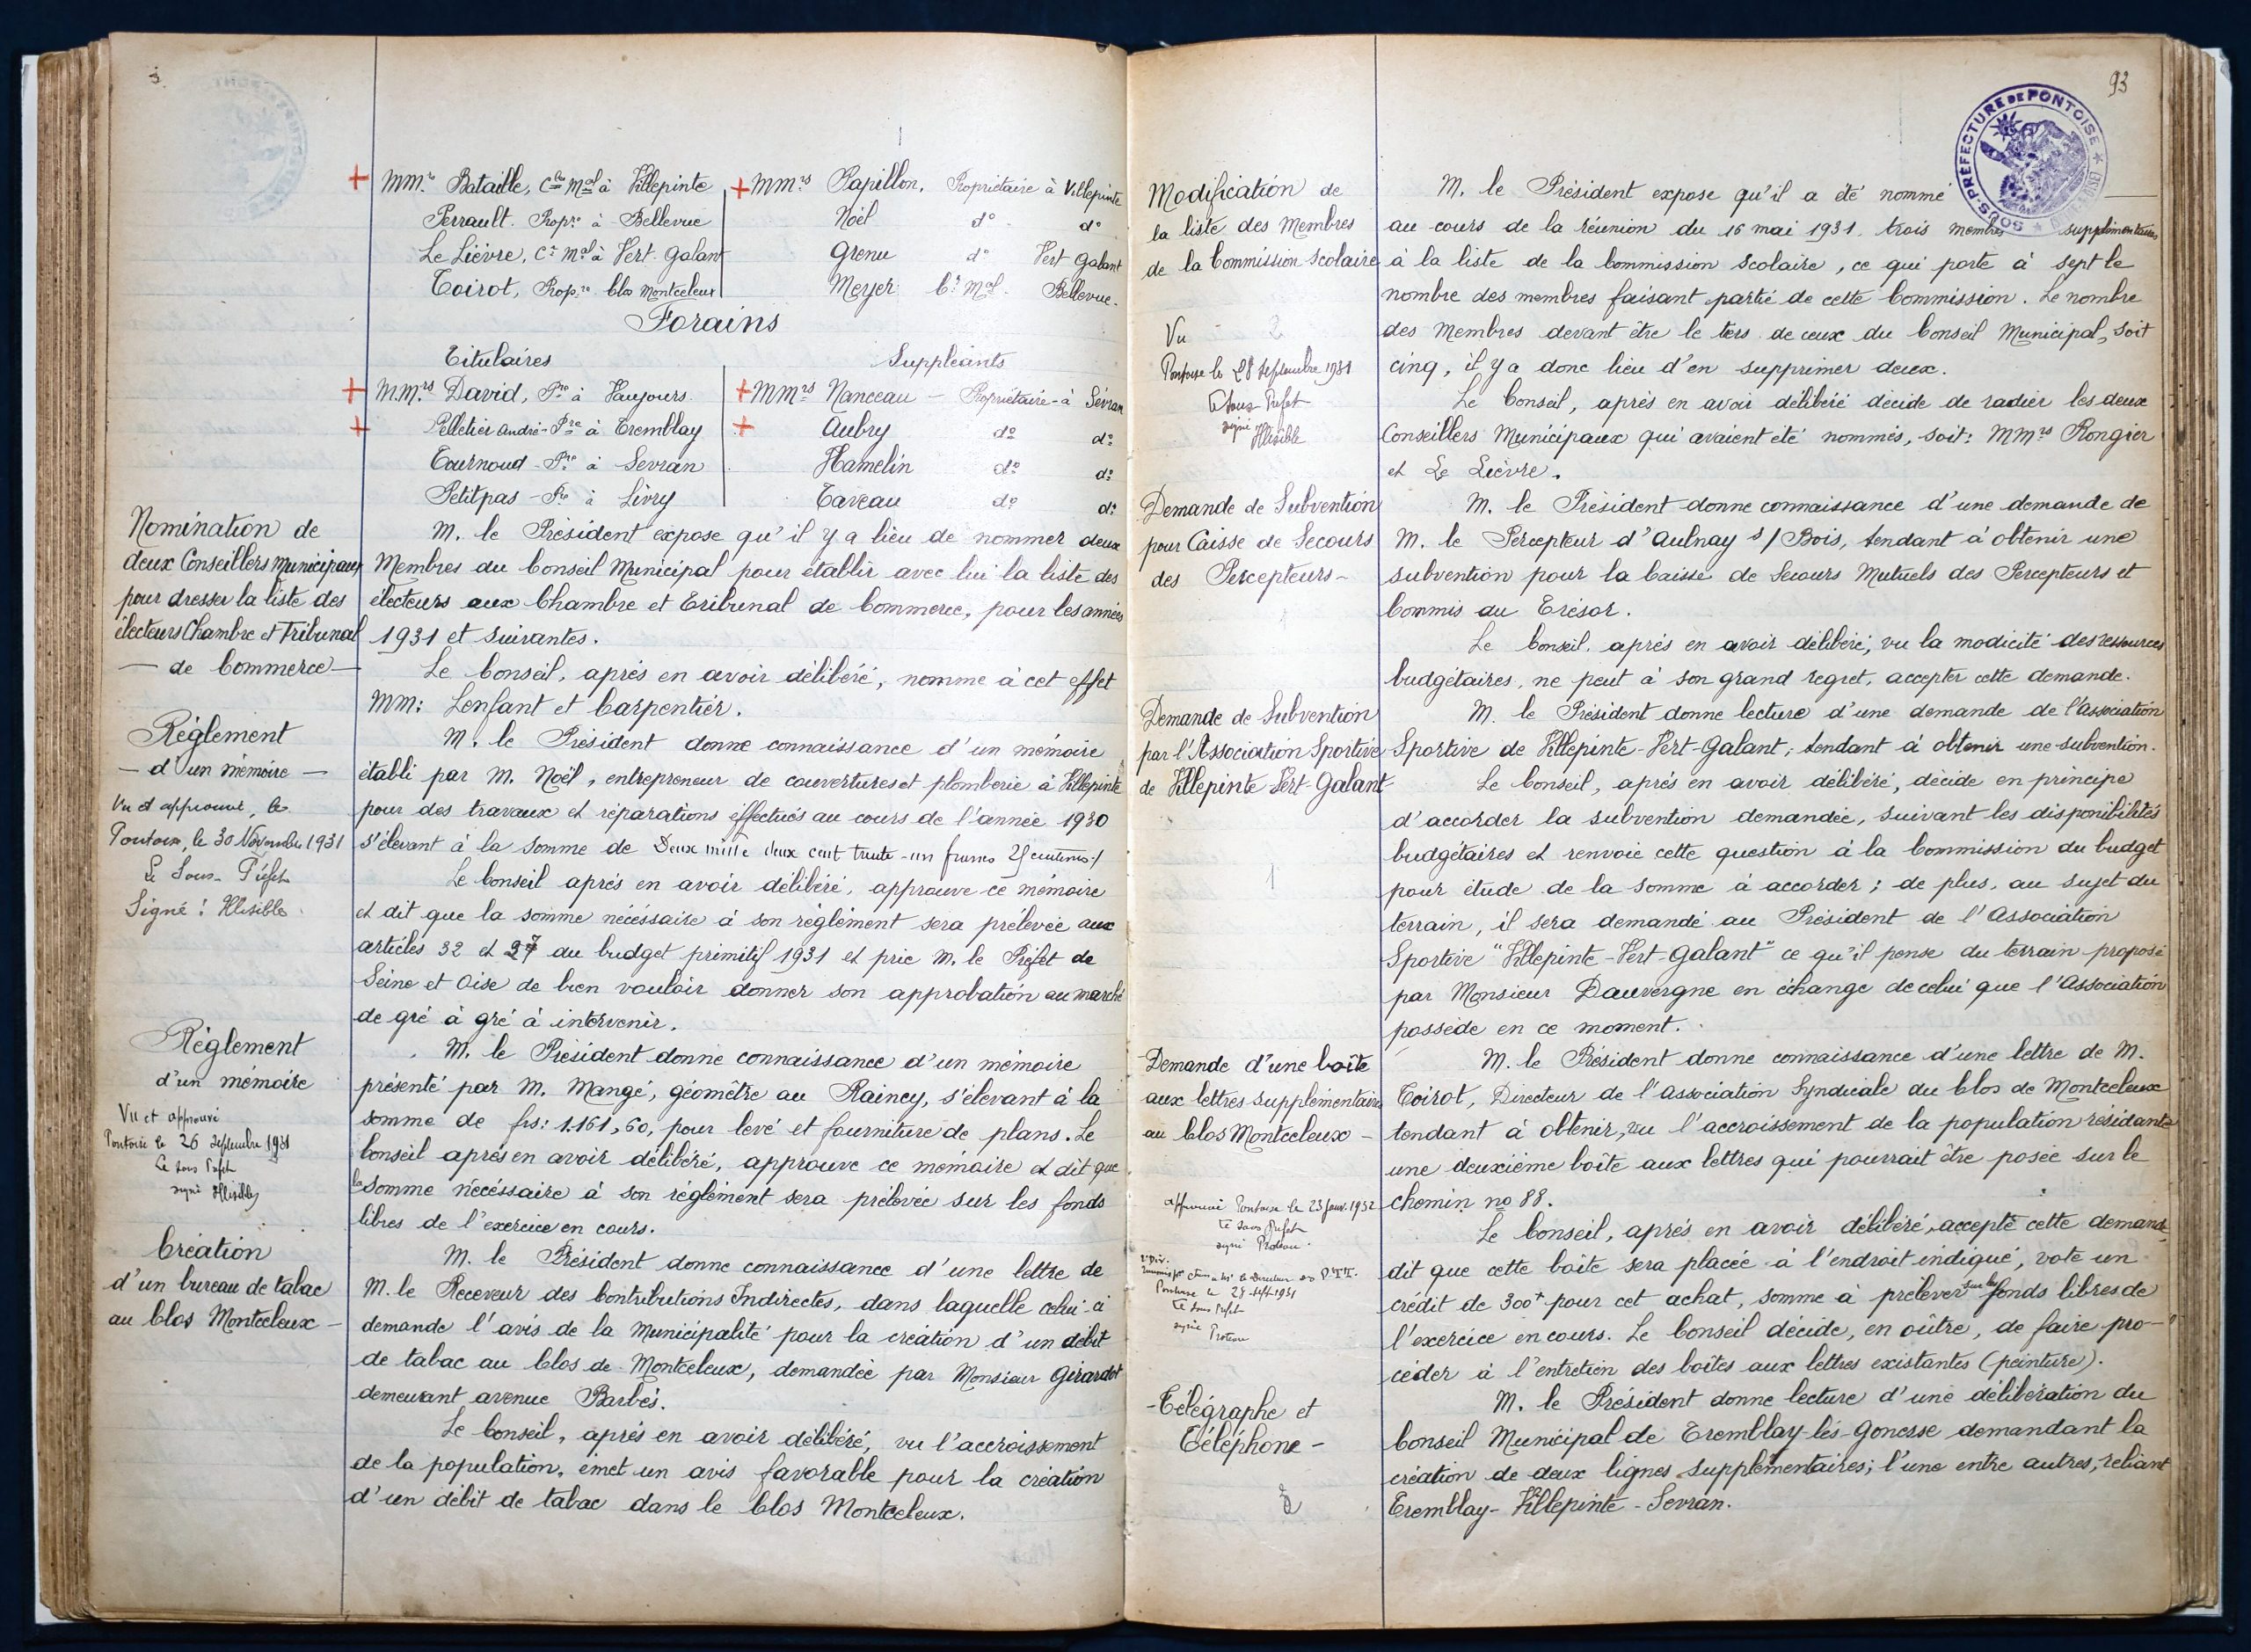 MM.rs Bataille, Cller Mal à Villepinte
Perrault. Propre à Bellevue
Le Lièvre, Cr Mal à Vert-Galant
Toirot, Propre Clos Montceleux
MMrs Papillon, Propriétaire à Villepinte
Noël do do
Grenu do Vert Galant
Meyer Cr Mal. Bellevue.
Forains
Titulaires
Suppléants
M.Mrs David, Pre à Vaujours.
Pelletier André - Pre à Tremblay
Tournoud - Pre à Sevran
Petitpas - Pre à Livry
MMrs Nanceau - Propriétaire - à Sevran
Aubry do do
Hamelin do do
Taveau do do
Nomination de
deux Conseillers Municipaux
pour dresser la liste des
électeurs Chambre et Tribunal
— de Commerce —
M. le Président expose qu'il y a lieu de nommer deux
Membres du Conseil Municipal pour établir avec lui la liste des
électeurs aux Chambre et Tribunal de Commerce, pour les années
1931 et suivantes.
Le Conseil, après en avoir délibéré, nomme à cet effet
MM: Lenfant et Carpentier.
Réglement
— d'un mémoire —
Vu et approuvé, le
Pontoise, le 30 Novembre 1931
Le Sous-Préfet
Signé: Illisible.
M. le Président donne connaissance d'un mémoire
établi par M. Noël, entrepreneur de couvertures et plomberie à Villepinte
pour des travaux et réparations éffectués au cours de l'année 1930
s'élevant à la somme de Deux mille deux cent trente-un francs centimes
Le Conseil après en avoir délibéré, approuve ce mémoire
et dit que la somme nécéssaire à son réglement sera prélevée aux
articles 32 et 27 du budget primitif 1931 et prie M. le Préfet de
Seine et Oise de bien vouloir donner son approbation au marché
de gré à gré à intervenir.
Réglement
d'un mémoire
Vu et approuvé
Pontoise le 26 septembre 1931
Le Sous Préfet
signé Illisible
M. le Président donne connaissance d'un mémoire
présenté par M. Mangé, géomètre au Raincy, s'élevant à la
somme de frs: 1.161,60, pour levé et fourniture de plans. Le
Conseil après en avoir délibéré, approuve ce mémoire et dit que
la somme nécéssaire à son réglement sera prélevée sur les fonds
libres de l'exercice en cours.
Création
d'un bureau de tabac
au Clos Montceleux —
M. le Président donne connaissance d'une lettre de
M. le Receveur des Contributions Indirectes, dans laquelle celui-ci
demande l'avis de la Municipalité pour la création d'un débit
de tabac au Clos de Montceleux, demandée par Monsieur Girardot
demeurant avenue Barbès.
Le Conseil, après en avoir délibéré, vu l'accroissement
de la population, émet un avis favorable pour la création
d'un débit de tabac dans le Clos Montceleux.
93
SOUS-PRÉFECTURE DE PONTOISE
Modification de
la liste des Membres
de la Commission Scolaire
Vu
Pontoise le 28 septembre 1931
Le Sous-Préfet
signé Illisible
M. le Président expose qu'il a été nommé
au cours de la réunion du 16 mai 1931, trois membres supplémentaires
à la liste de la Commission Scolaire, ce qui porte à sept le
nombre des membres faisant partie de cette Commission. Le nombre
des Membres devant être le tiers de ceux du Conseil Municipal, soit
cinq, il y a donc lieu d'en supprimer deux.
Le Conseil, après en avoir délibéré décide de radier les deux
Conseillers Municipaux qui avaient été nommés, soit: MMrs Rongier
et Le Lièvre.
Demande de Subvention
pour Caisse de Secours
des Percepteurs -
M. le Président donne connaissance d'une demande de
M. le Percepteur d'Aulnay s/ Bois, tendant à obtenir une
subvention pour la Caisse de Secours Mutuels des Percepteurs et
Commis du Trésor.
Le Conseil, après en avoir délibéré, vu la modicité des ressources
budgétaires, ne peut à son grand regret, accepter cette demande.
Demande de Subvention
par l'Association Sportive
de Villepinte Vert-Galant
M. le Président donne lecture d'une demande de l'Association
Sportive de Villepinte-Vert-Galant, tendant à obtenir une subvention.
Le Conseil, après en avoir délibéré, décide en principe
d'accorder la subvention demandée, suivant les disponibilités
budgétaires et renvoie cette question à la Commission du budget
pour étude de la somme à accorder; de plus, au sujet du
terrain, il sera demandé au Président de l'Association
Sportive "Villepinte-Vert-Galant" ce qu'il pense du terrain proposé
par Monsieur Dauvergne en échange de celui que l'Association
possède en ce moment.
Demande d'une boîte
aux lettres supplémentaire
au Clos Montceleux -
approuvé Pontoise le 23 janv. 1932
Le Sous Préfet
signé Proteau.
Le Sous Préfet
signé Proteau
M. le Président donne connaissance d'une lettre de M.
Toirot, Directeur de l'Association Syndicale du Clos de Montceleux
tendant à obtenir, vu l'accroissement de la population résidante
une deuxième boîte aux lettres qui pourrait être posée sur le
chemin no 88.
Le Conseil, après en avoir délibéré, accepte cette demande,
dit que cette boîte sera placée à l'endroit indiqué, vote un
crédit de 300f pour cet achat, somme à prélever sur les fonds libres de
l'exercice en cours. Le Conseil décide, en oûtre, de faire pro-
céder à l'entretien des boîtes aux lettres existantes (peinture).
-Télégraphe et
Téléphone -
M. le Président donne lecture d'une délibération du
Conseil Municipal de Tremblay-lès-Gonesse demandant la
création de deux lignes supplémentaires; l'une entre autres, reliant
Tremblay - Villepinte - Sevran.